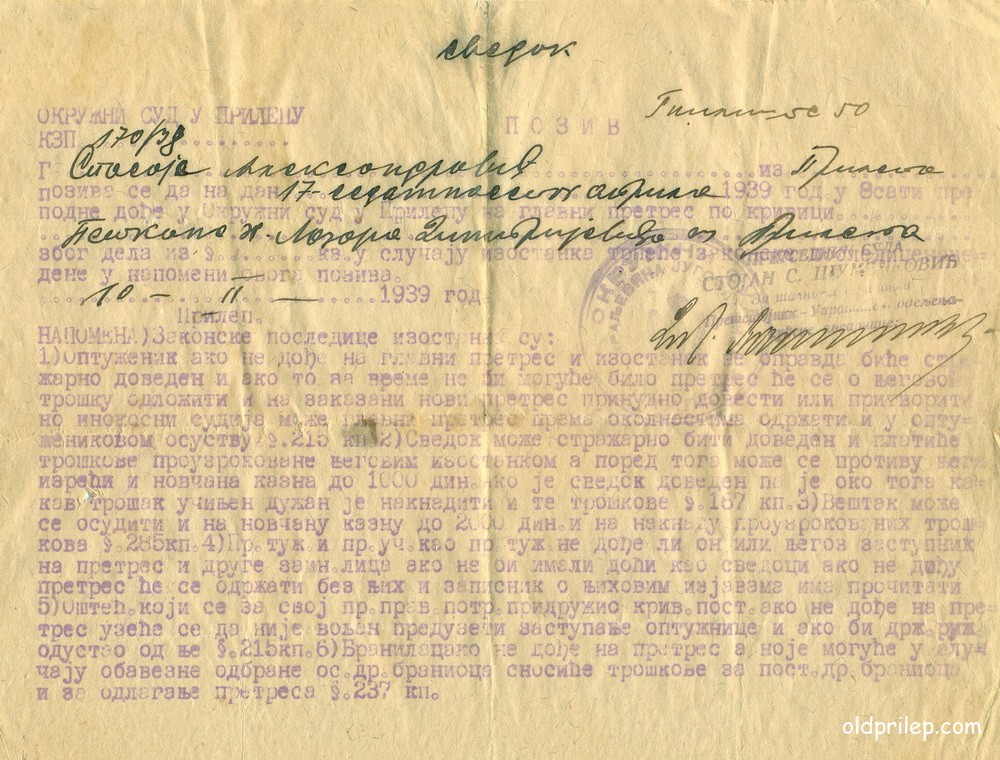 сведок
ОКРУЖНИ СУД У ПРИЛЕПУ
КЗП 170/38
ПОЗИВ
Г Стасоја Александровић из Прилепа
позива се да на дан 17-седамнаестог априла 1939 год. у 8 сати пре
подне дође у Окружни суд у Прилепу за главни претрес по кривици
Лазара Димитријевића из Прилепа
због дела из §. к.з. у случају изостанка трпиће законске последице наве-
дене у напомени овога позива.
10 - II - 1939 год.
Прилеп.
СТОЈАН С.
НАПОМЕНА) Законске последице изостанка су:
1) Оптуженик ако не дође на главни претрес и изостанак не оправда биће стра-
жарно доведен и ако то за време не би могуће било претрес ће се о његовој
трошку одложити и на заказани нови претрес принудно довести или притворити
но инокосни судија може главни претрес према околностима одржати и у опту-
жениковом осуству §.215 кп. 2) Сведок може стражарно бити доведен и платиће
трошкове проузроковане његовим изостанком а поред тога може се противу њега
изрећи и новчана казна до 1000 дин. ако је сведок доведен па је око тога ка-
кав трошак учињен дужан је накнадити и те трошкове §.187 кп. 3) Вештак може
се осудити и на новчану казну до 2000 дин. и на накнаду проузрокованих трош-
кова §.285кп. 4) Пр.туж. и пр.уч. као пр.туж не дође ли он или његов заступник
на претрес и друге заин.лица ако не би имали доћи као сведоци ако не дођу
претрес ће се одржати без њих и записник о њиховим изјавама има прочитати
5) Оштећ. који се за свој пр.прав.потр.придружио крив.пост. ако не дође на пре-
трес узеће се да није вољан предузети заступање оптужнице и ако би држ.
одустао од ње §.215кп. 6) Бранилац ако не дође на претрес а није могуће у слу-
чају обавезне одбране ос.др.браниоца сносиће трошкове за пост.др.браниоца
и за одлагање претреса §.237 кп.
oldprilep.com